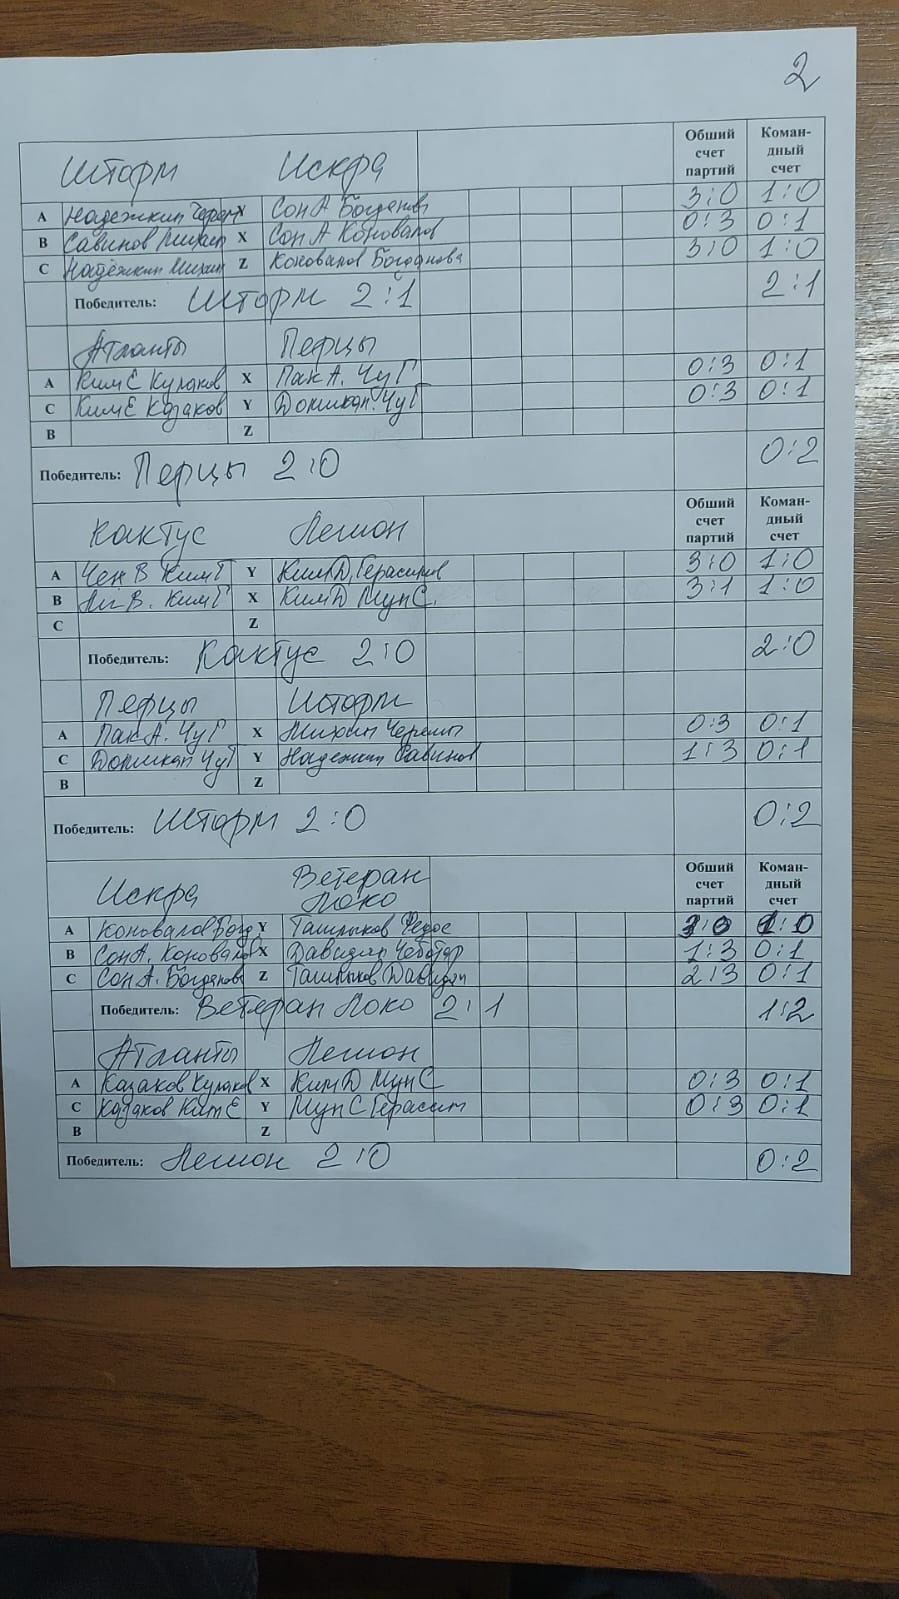 2
Шторм Искра Общий счет партий Коман-дный счет
A Надежкин Черем Y Сон А Богданов 3:0 1:0
B Савинов Михин X Сон А Коновалов 0:3 0:1
C Надежкин Михин Z Коновалов Богданова 3:0 1:0
Победитель: Шторм 2:1 2:1
Атланты Перцы
A Ким Е Кулаков X Пак А. Чу Г 0:3 0:1
C Ким Е Казаков Y Чу Г 0:3 0:1
B Z
Победитель: Перцы 2:0 0:2
Кактус Легион Общий счет партий Коман-дный счет
A Чен В Ким Г Y Ким Д, Герасимов 3:0 1:0
B В. Ким Г X Ким Д Мун С. 3:1 1:0
C Z
Победитель: Кактус 2:0 2:0
Перцы Шторм
A Пак А. Чу Г X Михин Черем 0:3 0:1
C Чу Г Y Надежкин Савинов 1:3 0:1
B Z
Победитель: Шторм 2:0 0:2
Искра Ветеран Локо Общий счет партий Коман-дный счет
A Коновалов Богд Y Федос 3:0 1:0
B Сон А. Коновалов X Давидян Чеботар 1:3 0:1
C Сон А. Богданов Z Давидян 2:3 0:1
Победитель: Ветеран Локо 2:1 1:2
Атланты Легион
A Казаков Кулаков X Ким Д Мун С 0:3 0:1
C Казаков Ким Е Y Мун С Герасим 0:3 0:1
B Z
Победитель: Легион 2:0 0:2